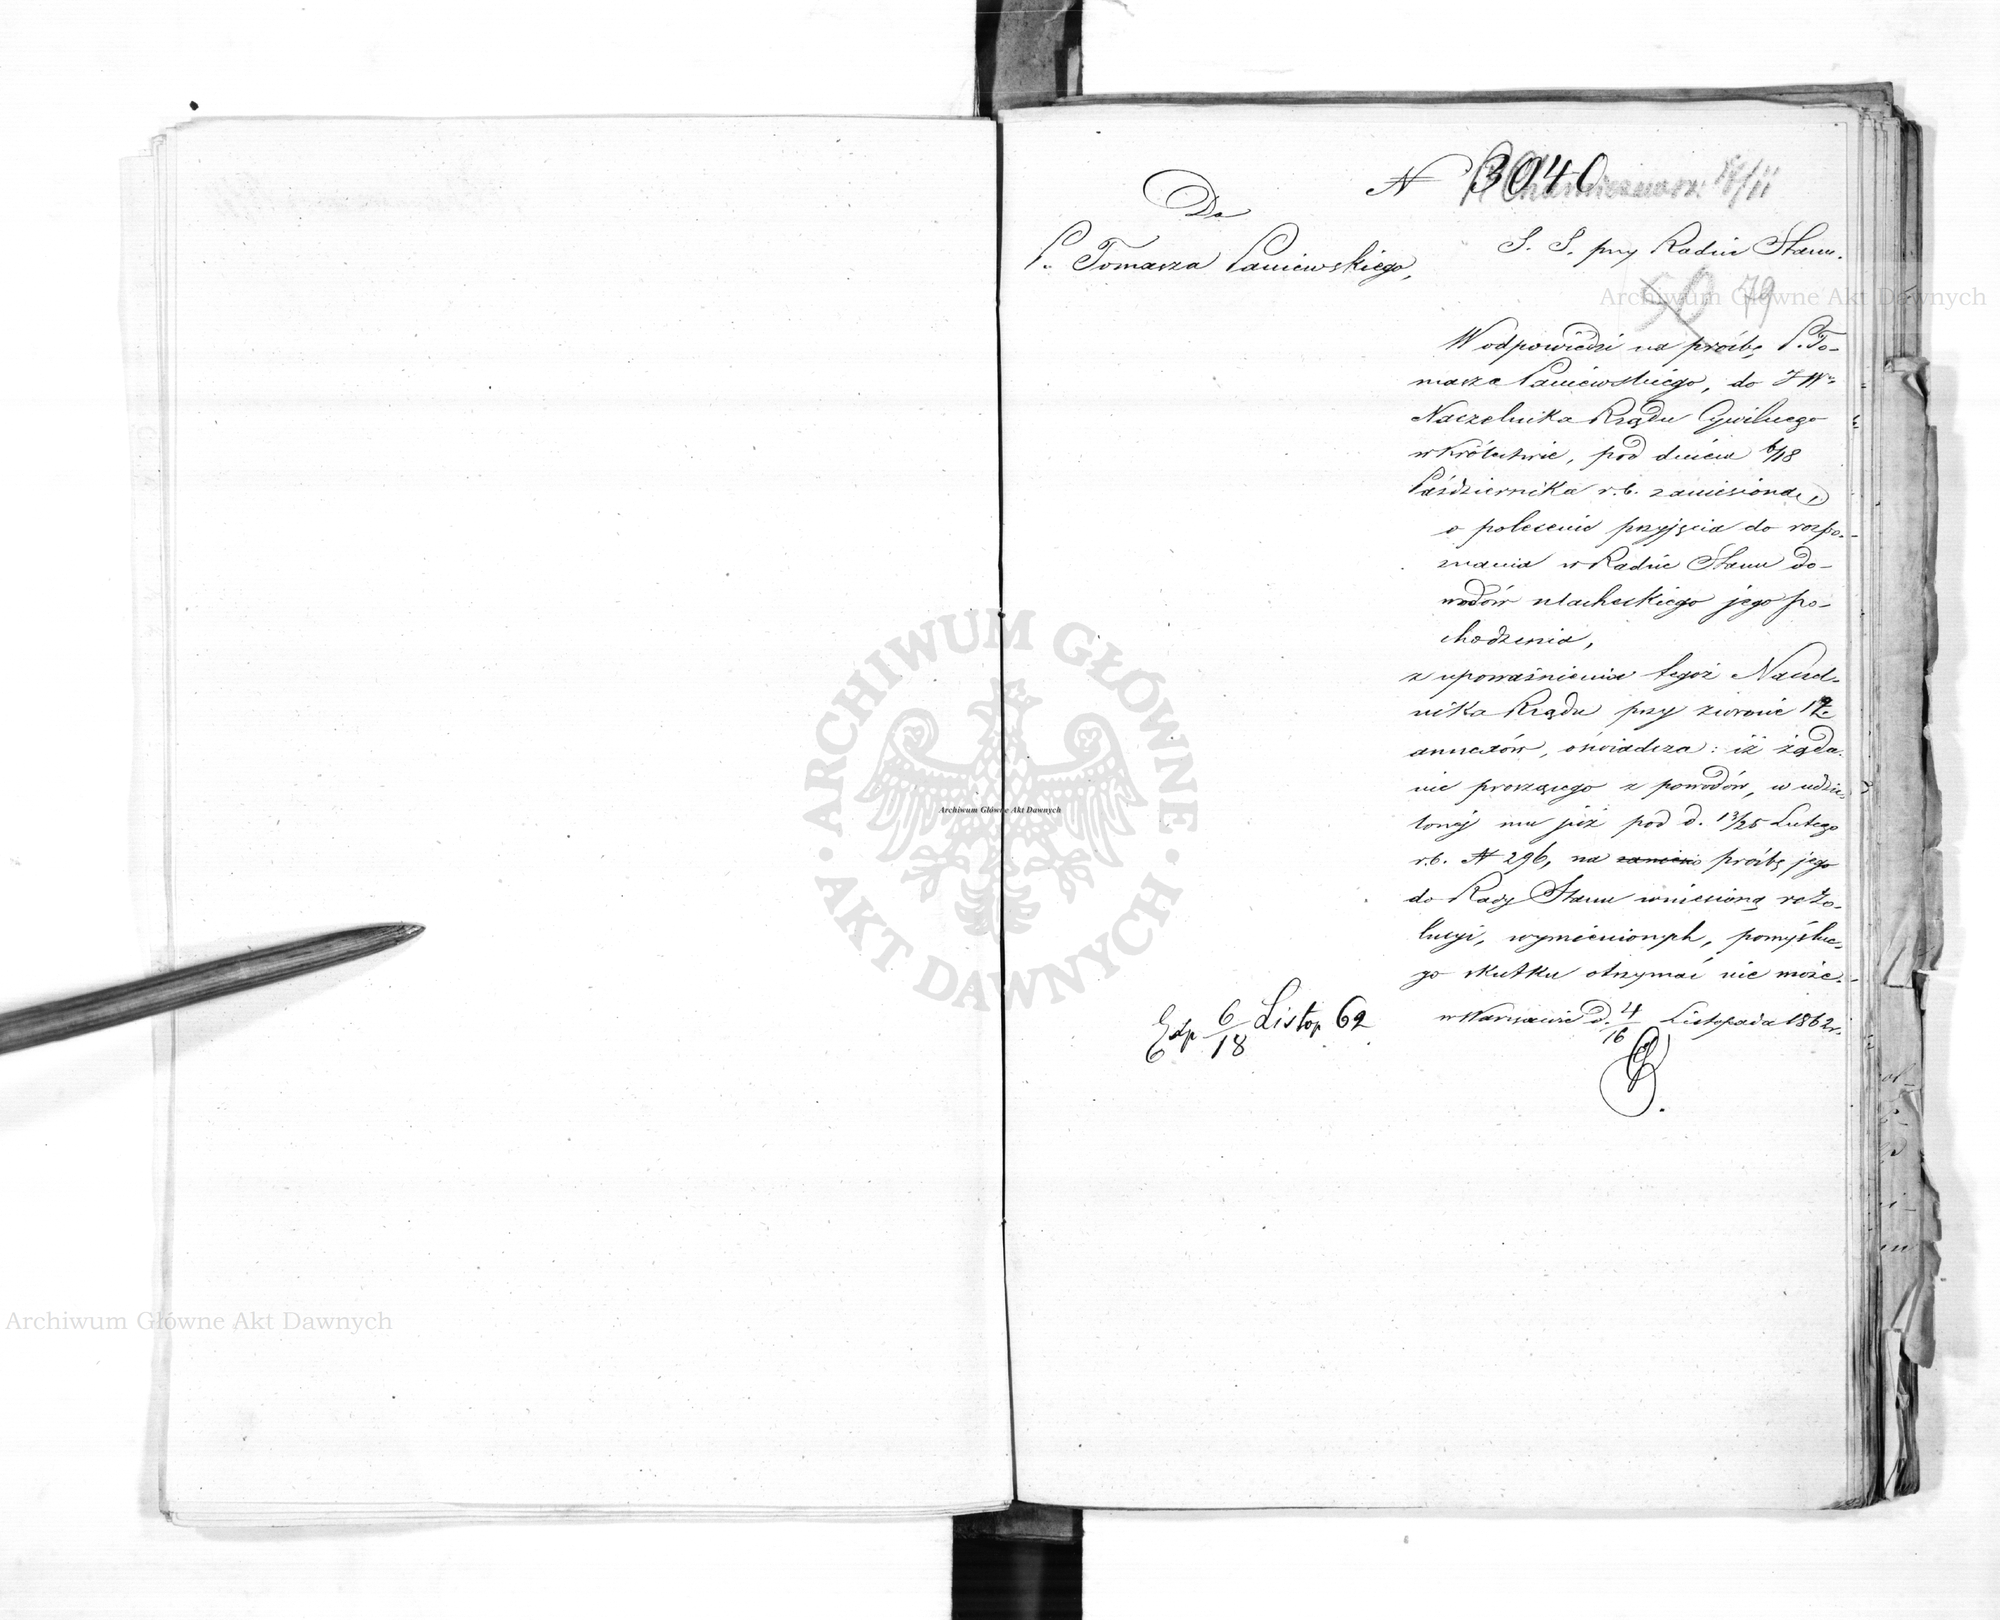 N 3040
18/11
Do
P. Tomasza Paniewskiego,
S. S. przy Radzie Stanu.
50 79
W odpowiedzi na prośbę P. To-
masza Paniewskiego, do JWo
Naczelnika Rządu Cywilnego
w Królestwie, pod dniem 6/18
Października r.b. zaniesioną,
o polecenie przyjęcia do rozpo-
znania w Radzie Stanu do-
wodów szlacheckiego jego po-
chodzenia,
z upoważnienia tegoż Naczel-
nika Rządu przy zwrocie
annexów, oświadcza: iż żąda-
nie proszącego z powodów, w udzie-
lonej mu już pod d. 13/25 Lutego
r.b. N 296, na prośbę jego
do Rady Stanu wniesioną rezo-
lucyi, wymienionych, pomyślne-
go skutku otrzymać nie może.
w Warszawie d. 4/16 Listopada 1862 r.
Exp 6/18 Listop 62
Archiwum Główne Akt Dawnych
ARCHIWUM GŁÓWNE
AKT DAWNYCH
Archiwum Główne Akt Dawnych
Archiwum Główne Akt Dawnych